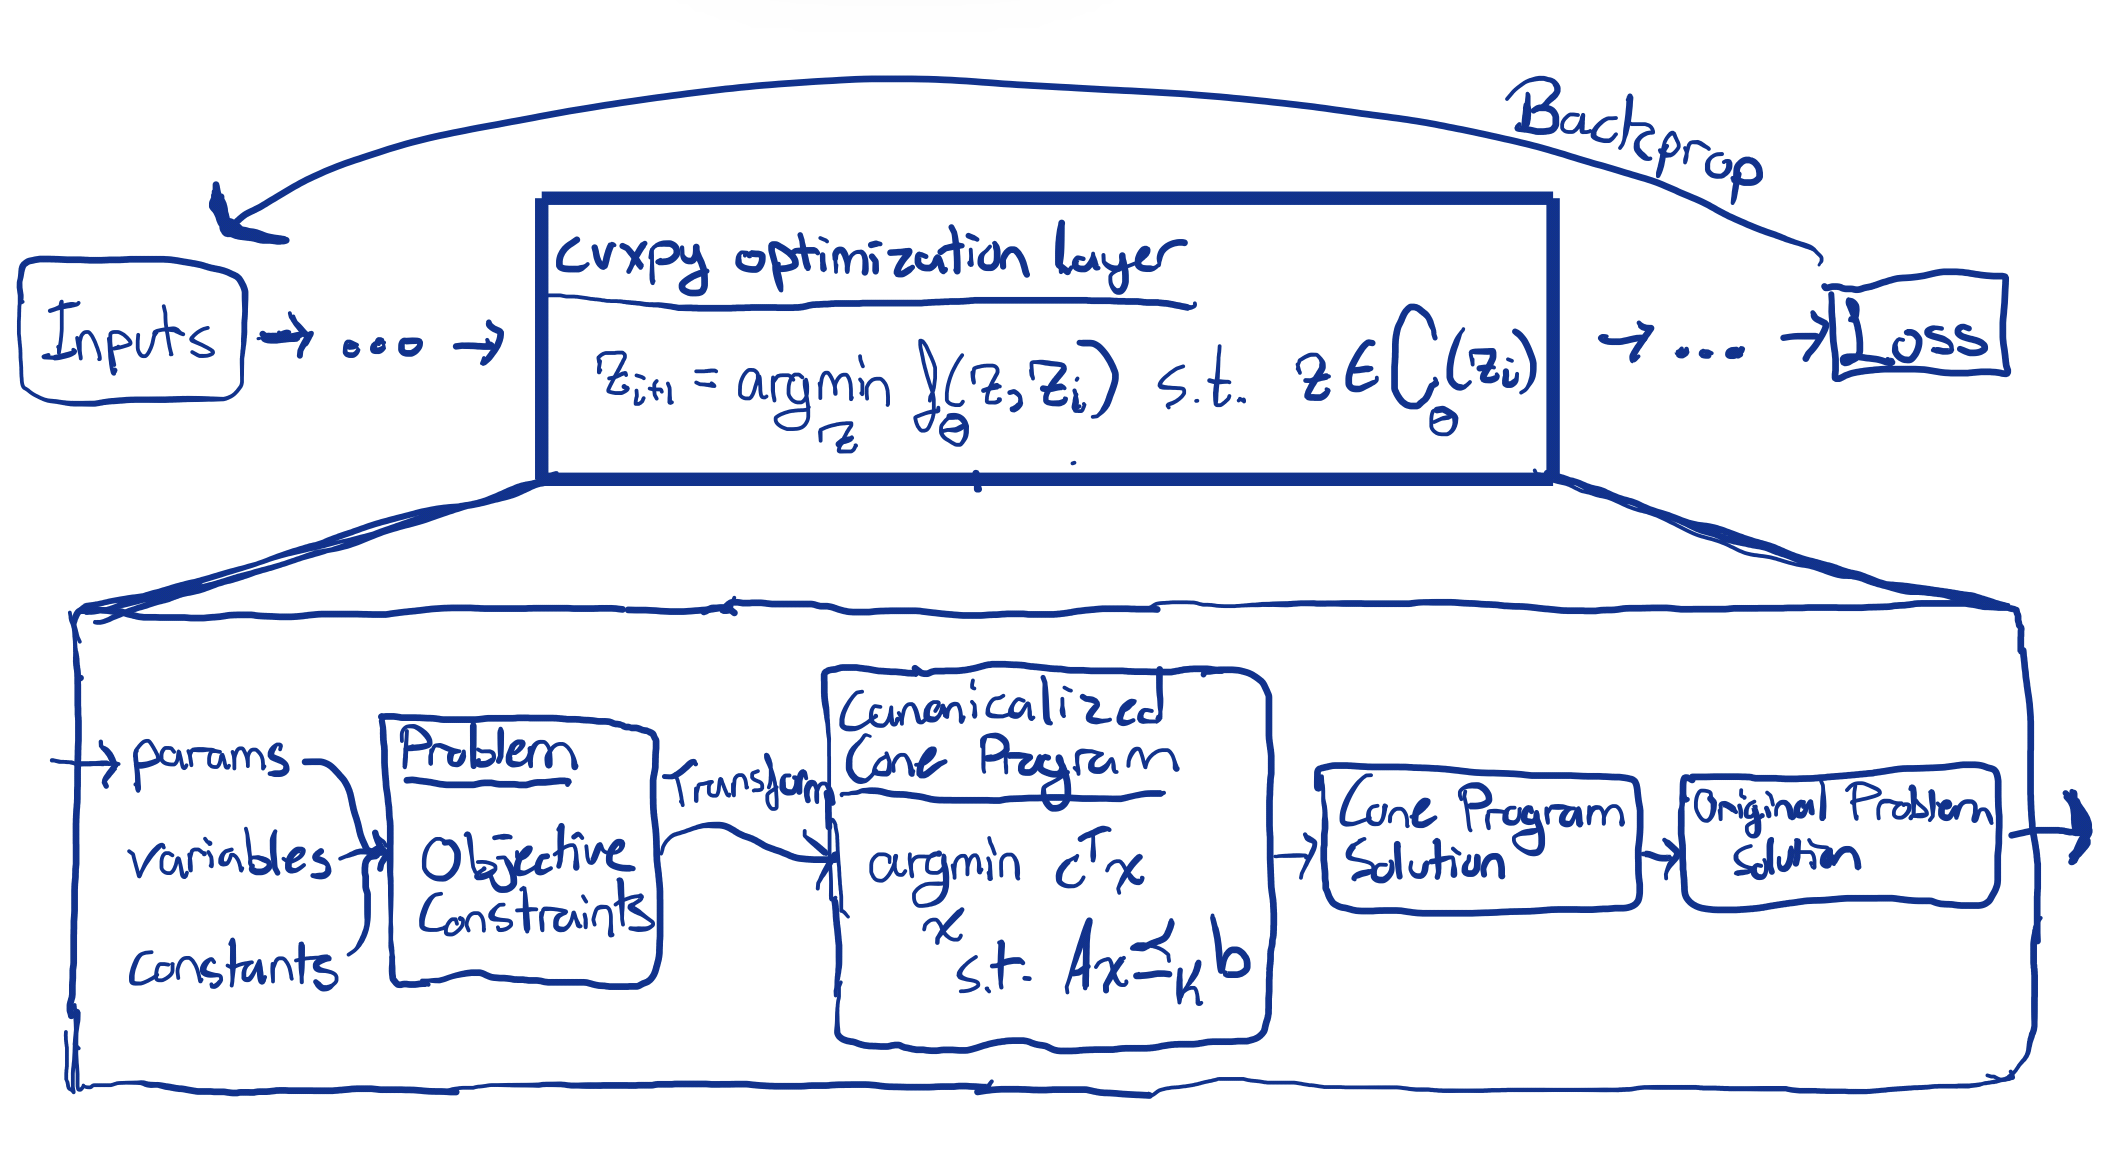 Backprop
Inputs
...
cvxpy optimization layer
z_{i+1} = argmin_z f_θ(z, z_i) s.t. z ∈ C_θ(z_i)
...
Loss
params
variables
constants
Problem
Objective
Constraints
Transform
Canonicalized
Cone Program
argmin_x c^T x
s.t. Ax ⪯_K b
Cone Program
Solution
Original Problem
Solution